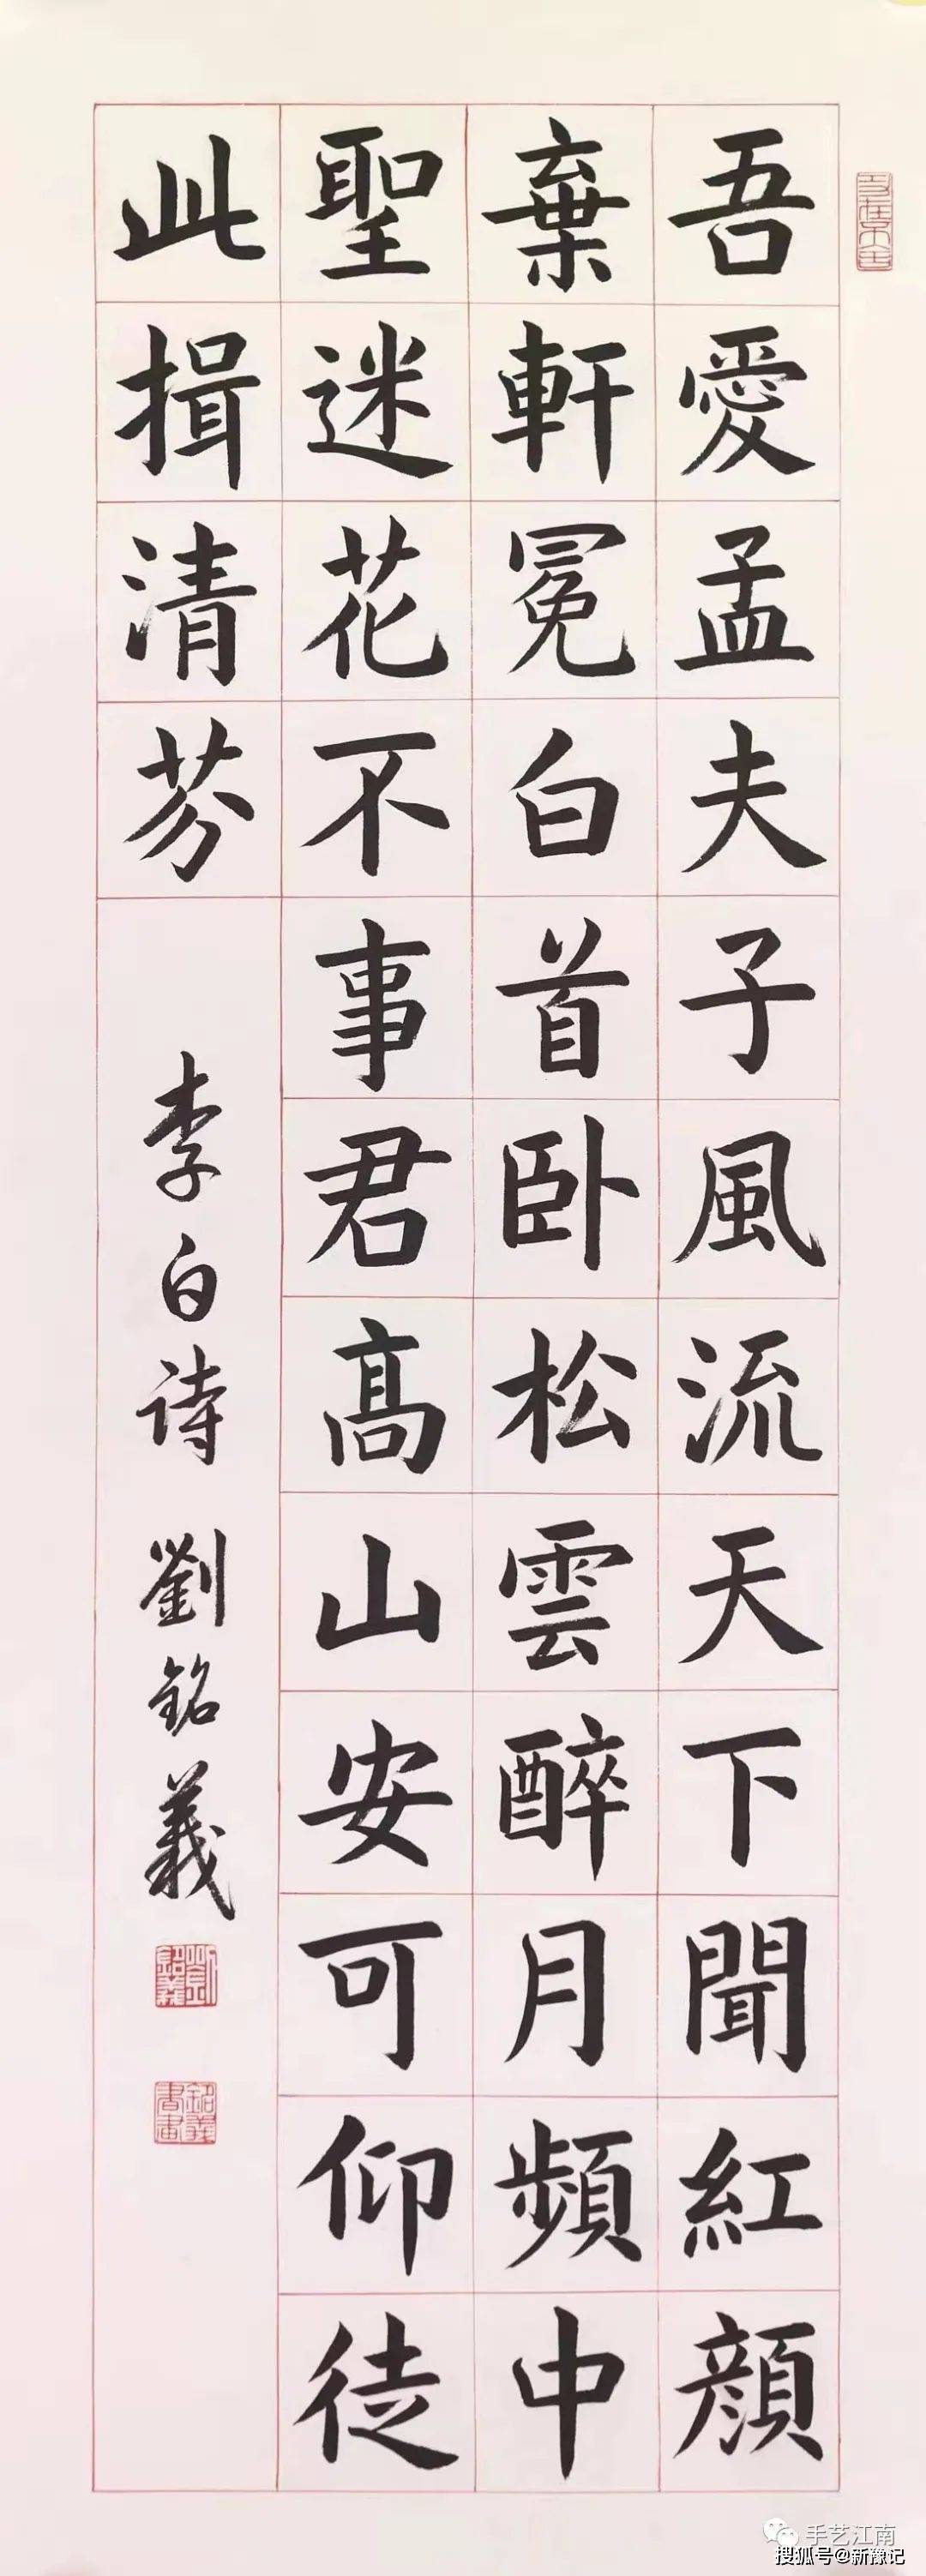 吾愛孟夫子風流天下聞紅顔
棄軒冕白首卧松雲醉月頻中
聖迷花不事君髙山安可仰徒
此揖清芬
李白诗 劉銘義
劉銘義
銘義書畫
手艺江南
搜狐号@新豫记